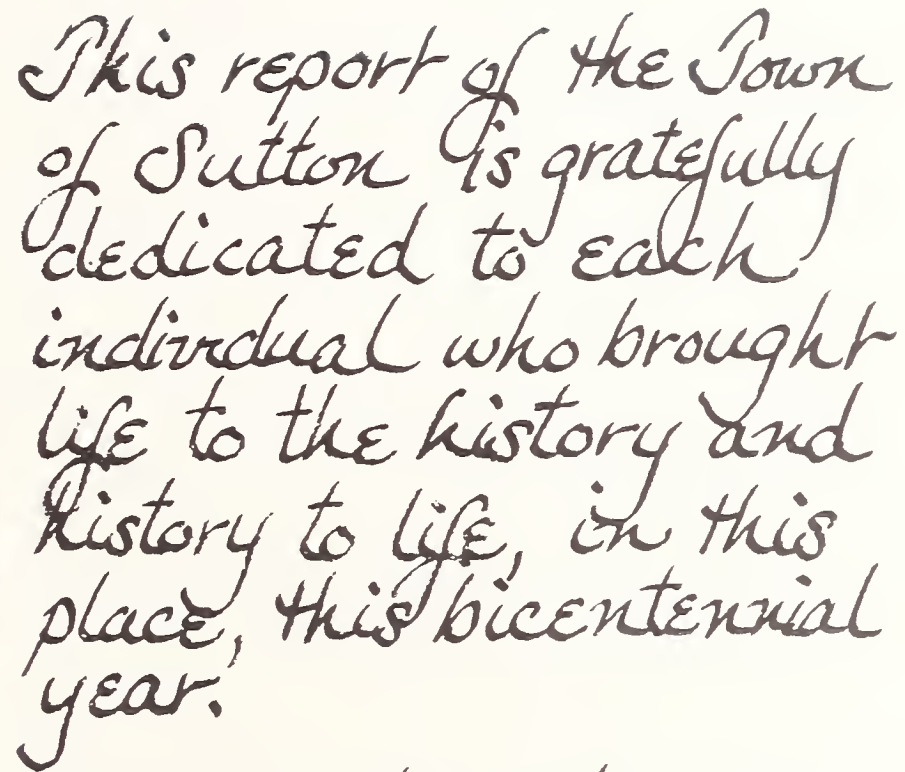 This report of the Town
of Sutton is gratefully
dedicated to each
individual who brought
life to the history and
history to life, in this
place, this bicentennial
year.